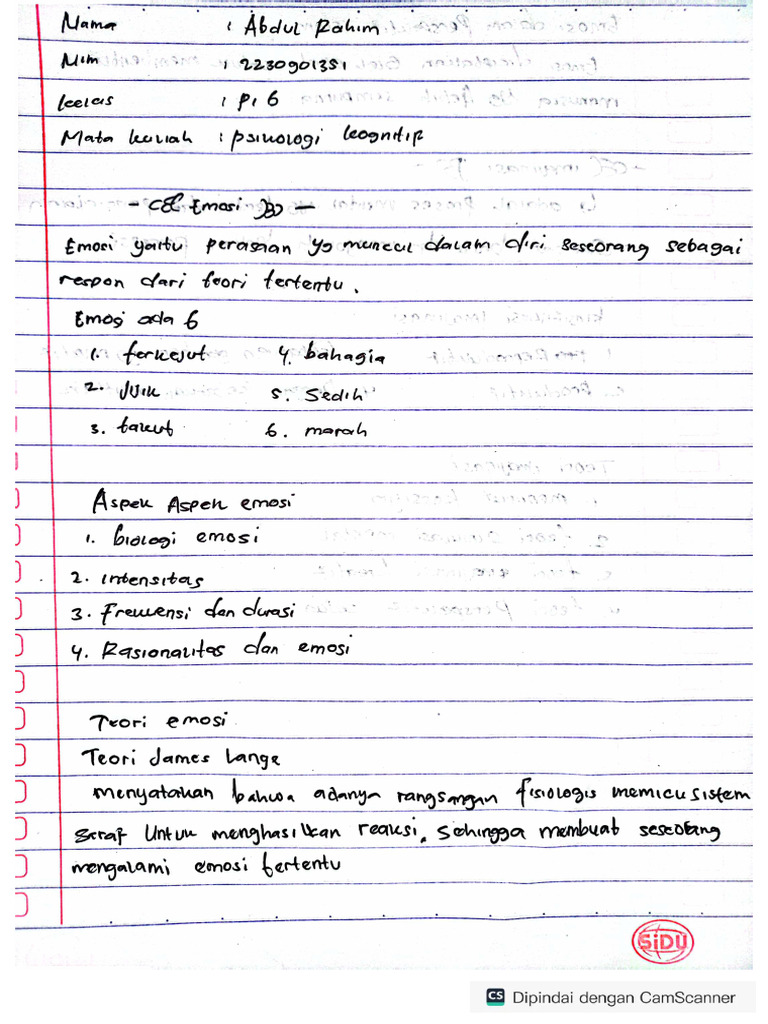 Nama : Abdul Rahim
Nim : 2230901351
kelas : PI 6
Mata kuliah : psikologi kognitif
- Emosi -
Emosi yaitu perasaan yg muncul dalam diri seseorang sebagai
respon dari teori tertentu.
Emosi ada 6
1. terkejut 4. bahagia
2. Jijik 5. Sedih
3. takut 6. marah
Aspek Aspek emosi
1. biologi emosi
2. intensitas
3. Frekuensi dan durasi
4. Rasionalitas dan emosi
Teori emosi
Teori James Lange
menyatakan bahwa adanya rangsangan fisiologis memicu sistem
saraf untuk menghasilkan reaksi, sehingga membuat seseorang
mengalami emosi tertentu
SiDU
CS Dipindai dengan CamScanner